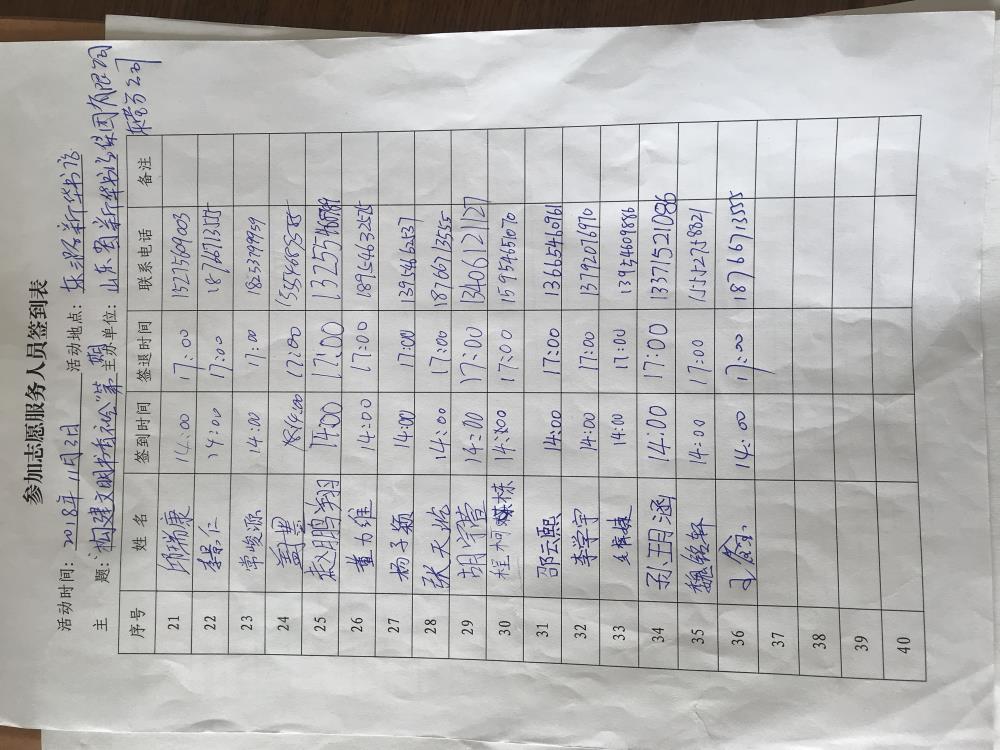 参加志愿服务人员签到表
活动时间：2018年1月3日 活动地点：东三路新华书店
主 题：构建文明书香社会 第 期 主办单位：山东省新华书店集团有限公司
东营分公司
序号 姓 名 签到时间 签退时间 联系电话 备注
21 邱瑞康 14:00 17:00 15275669003
22 李景仁 14:00 17:00 18766713555
23 常峻源 14:00 17:00 18253799959
24 14:00 17:00
25 赵鹏翔 14:00 17:00
26 董力维 14:00 17:00 18954632525
27 杨子颖 14:00 17:00 13954666237
28 张天屹 14:00 17:00 18766713555
29 胡学萱 14:00 17:00 13406212127
30 程柯栋 14:00 17:00 15954651070
31 邵云熙 14:00 17:00 13665460961
32 李学宇 14:00 17:00 13792076970
33 14:00 17:00 13954609886
34 孙玥涵 14:00 17:00 13371521086
35 魏铭轩 14:00 17:00 15552758821
36 14:00 17:00 18766713555
37
38
39
40